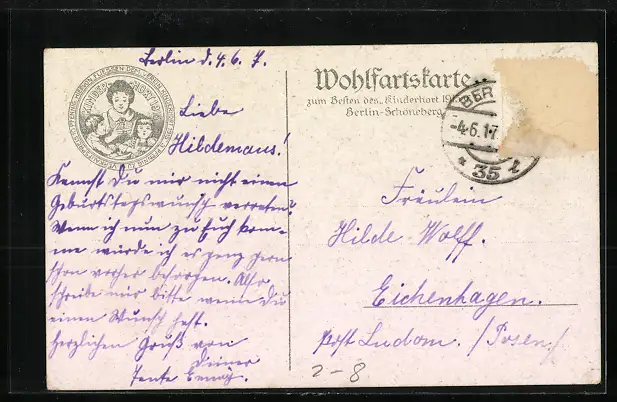 Berlin d. 4. 6. 7.
Liebe
Hildemaus!
Kannst Du mir nicht einen
Geburtstagswunsch verraten?
Wenn ich nun zu Euch kom-
me würde ich es ganz gern
schon vorher besorgen. Also
schreibe mir bitte wenn Du
einen Wunsch hast.
Herzlichen Gruß von
Deiner
Tante
Wohlfartskarte
zum Besten des Kinderhort
Berlin-Schöneberg
BER
-4.6.17
* 35
Fräulein
Hilde Wolff.
Eichenhagen.
Post Ludom. /Posen/
2-8